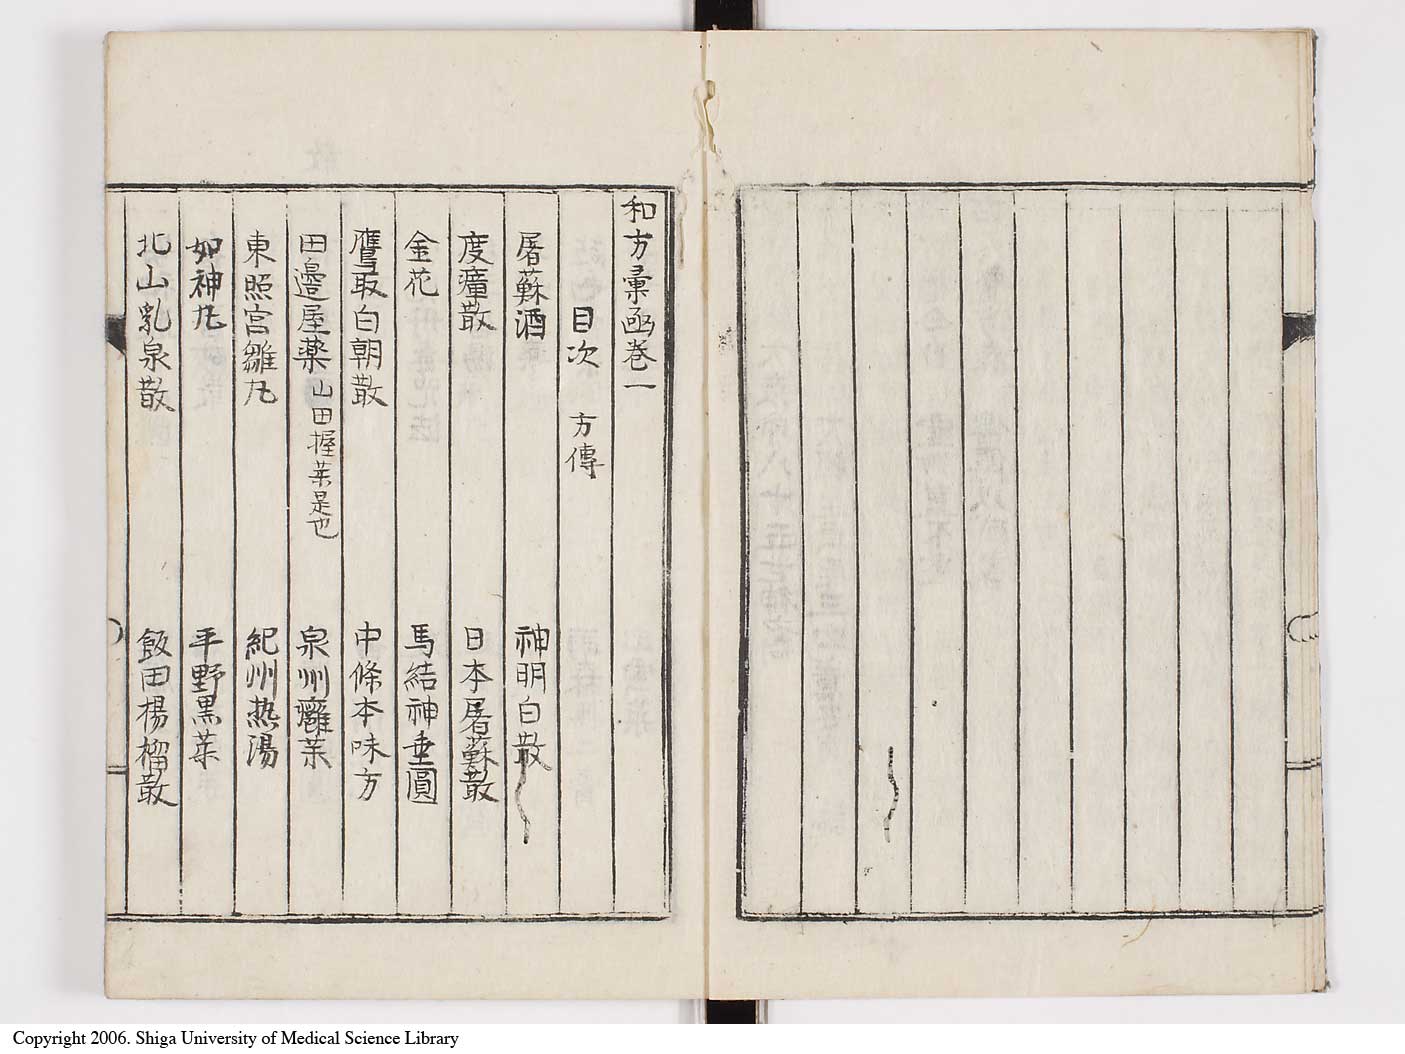 和方彙函巻一
目次 方傳
屠蘇酒 神明白散
度瘴散 日本屠蘇散
金花 馬結神圓
鷹取白朝散 中條本味方
田邊屋薬 山田握薬是也 泉州癰薬
東照宮雛丸 紀州熱湯
如神丸 平野黒薬
北山乳泉散 飯田楊榴散
Copyright 2006. Shiga University of Medical Science Library